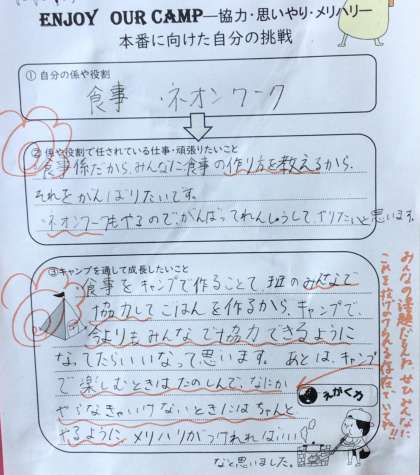 ENJOY OUR CAMP―協力・思いやり・メリハリ―
本番に向けた自分の挑戦
①自分の係や役割
食事 ・ネオンワーク
②係や役割で任されている仕事・頑張りたいこと
食事係だから、みんなに食事の作り方を教えるから、
それをがんばりたいです。
ネオンワークもやるので、がんばってれんしゅうして、やりたいと思います。
③キャンプを通して成長したいこと
食事をキャンプで作ることで、班のみんなで
協力してごはんを作るから、キャンプで、
今よりもみんなで協力できるように
なってたらいいなって思います。 あとは、キャンプ
で楽しむときはたのしんで、なにか
やらなきゃいけないときにはちゃんと
やるように メリハリがつけれれば いい
なと思いました。
えがく力
みんなの
ぜひ みんなに
これを
いてね!!